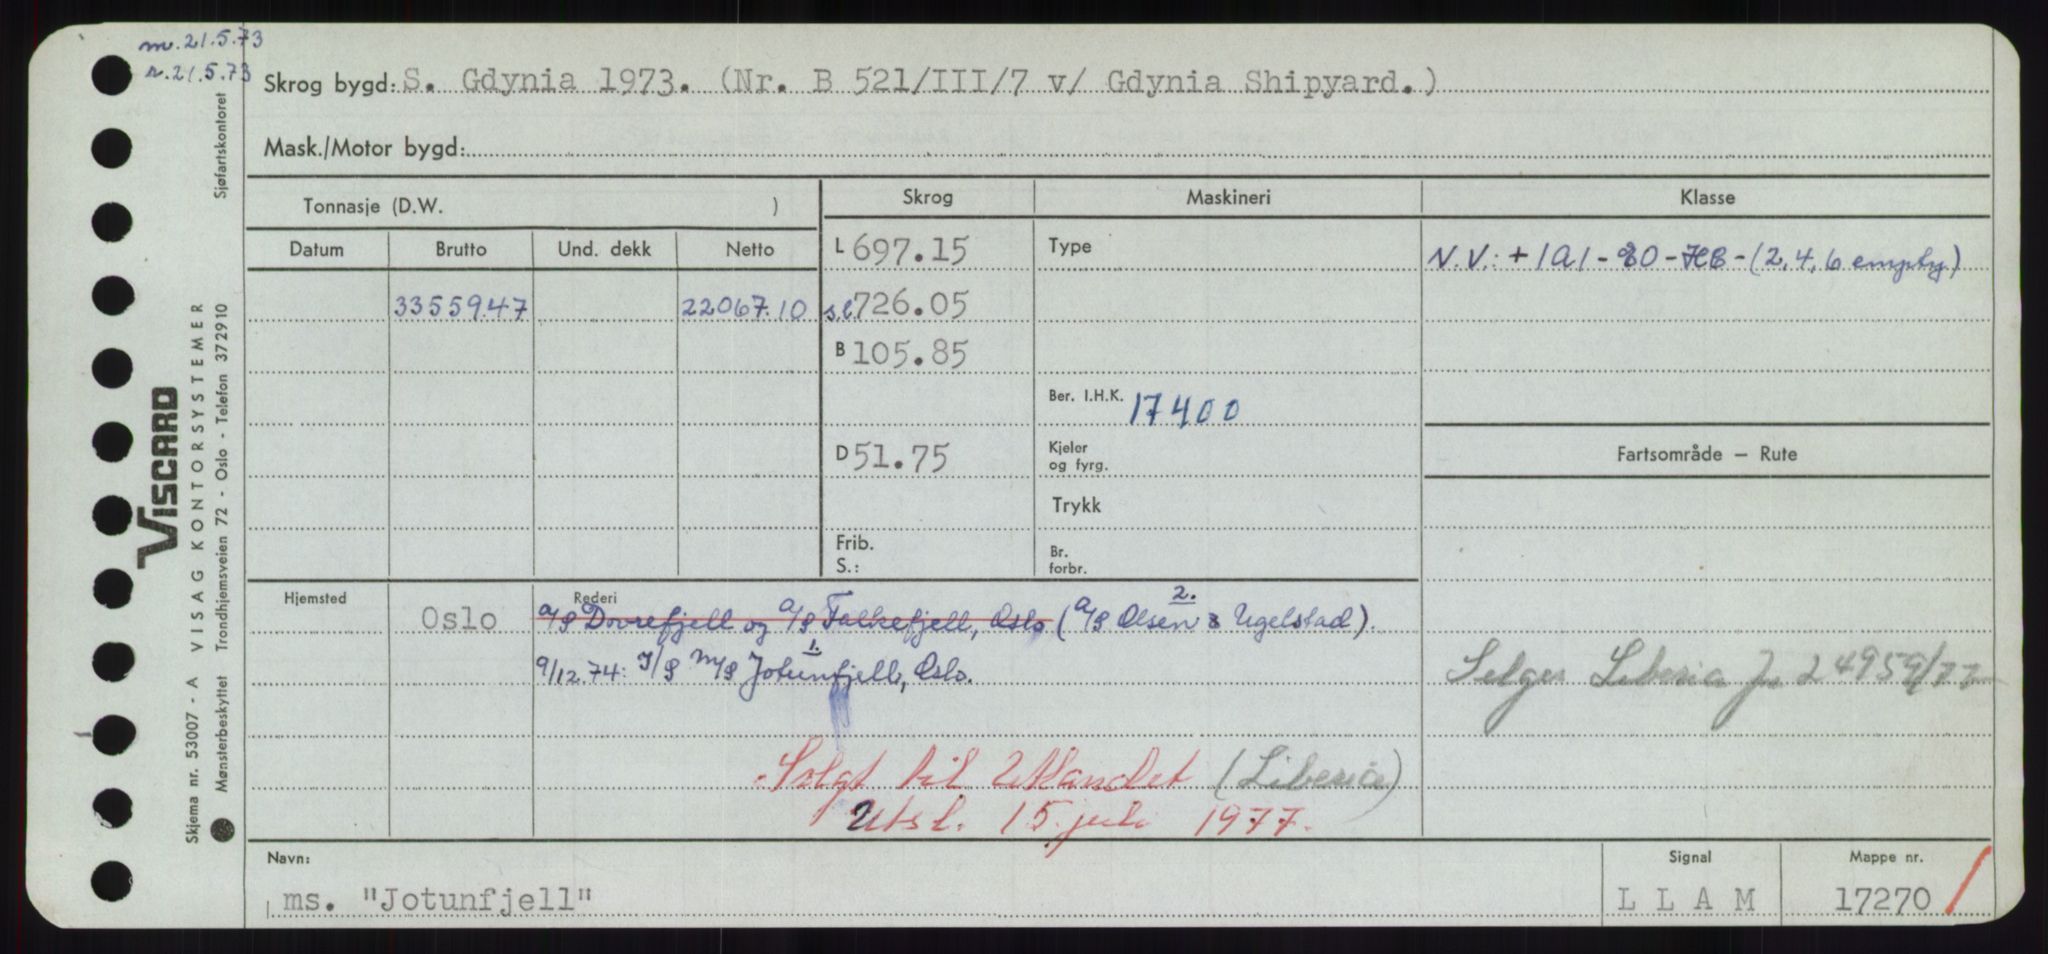 m. 21.5.73
r. 21.5.73
Skrog bygd: S. Gdynia 1973. (Nr. B 521/III/7 v/ Gdynia Shipyard.)
Mask./Motor bygd:
Tonnasje (D.W. )
Skrog
Maskineri
Klasse
Datum
Brutto
Und. dekk
Netto
L 697.15
Type
N.V.: + 1A1 - 80 - HC - (2, 4, 6 empty)
33559.47
22067.10
s.l. 726.05
B 105.85
Ber. I.H.K. 17400
D 51.75
Kjeler
og fyrg.
Fartsområde – Rute
Trykk
Frib.
S.:
Br.
forbr.
Hjemsted
Oslo
Rederi
2.
A/S Dovrefjell og A/S Falkefjell, Oslo (A/S Olsen & Ugelstad).
1.
9/12.74: I/S M/S Jotunfjell, Oslo.
Selges Liberia Jr 24959/77
Solgt til Utlandet (Liberia)
Utsl. 15 juli 1977.
Navn:
ms. "Jotunfjell"
Signal
L L A M
Mappe nr.
17270 /
Sjøfartskontoret
VISCARD
VISAG KONTORSYSTEMER
Skjema nr. 53007 - A
Mønsterbeskyttet Trondhjemsveien 72 - Oslo - Telefon 372910